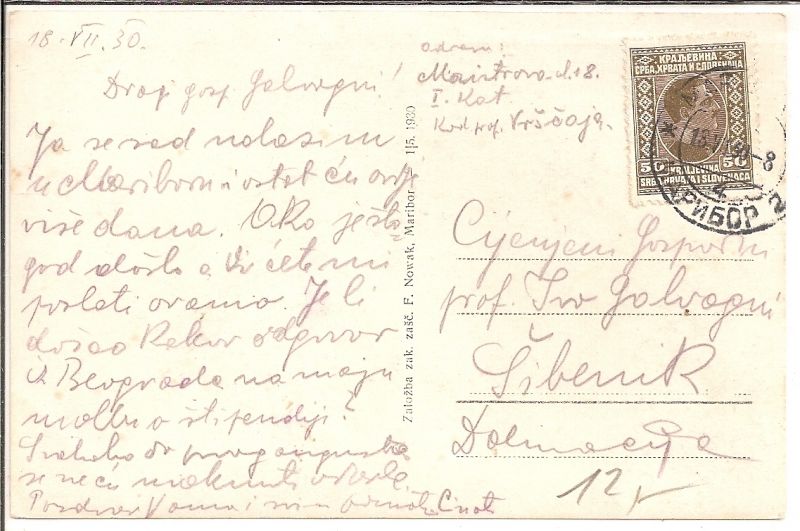 18. VII. 30.
Dragi gosp. Galvagni!
Ja se sad nalazim
u Mariboru i ostat ću ovdje
više dana. Ako je što
god došlo a Vi ćete mi
poslati ovamo. Je li
došao kakov odgovor
iz Beograda na moju
molbu o stipendiji?
Svakako do prvog augusta
se neću maknuti odavle.
Pozdrav Vama i svim
adresa:
Maistrova ul. 18.
I. Kat
Kod prof. Vrščaja.
Založba zak. zašč. F. Nowak, Maribor 1|5. 1930
КРАЉЕВИНА
СРБА, ХРВАТА И СЛОВЕНАЦА
50 50
KRALJEVINA
SRBA, HRVATA I SLOVENACA
МАРИБОР 2
Cijenjeni Gospodin
prof. Ivo Galvagni
Šibenik
Dalmacija
12,-